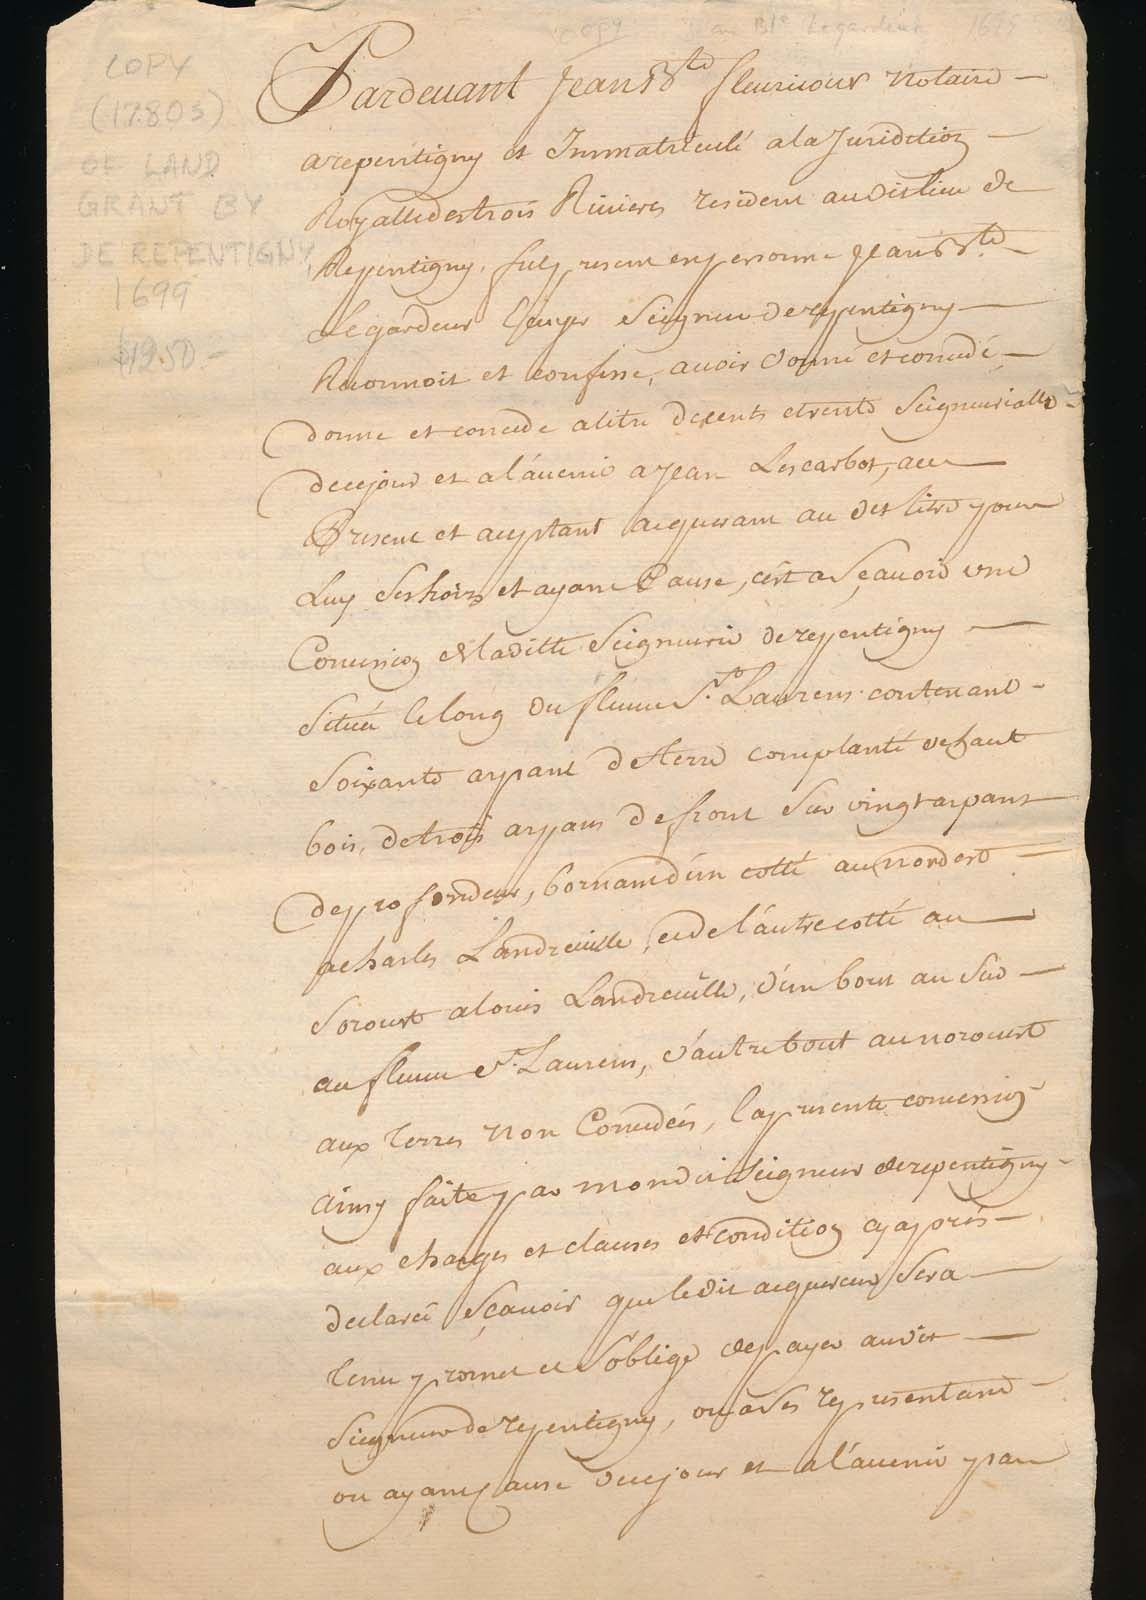 copy Jean Bte Legardeur 1699
COPY
(1780s)
OF LAND
GRANT BY
DE REPENTIGNY,
1699
$12.50-
Pardevant Jean Bte fleuricour Notaire
arepentigny et Immatriculé a la Juridiction
Royalle des trois Rivieres resident au dit lieu de
Repentigny, fut present en personne Jean Bte
Legardeur Seigneur de repentigny
Reconnoit et confesse, avoir donné et concedé,
donne et concede a titre de cents et rente Seigneurialle
de ce jour et a l'avenir a Jean Lescarbot, a ce
Present et acceptant acquerant au dit titre pour
Luy Ses hoirs et ayant Cause, c'est a Sçavoir une
Concession Laditte Seigneurie de repentigny
Située le long du fleuve St. Laurens contenant
Soixante arpant de terre complanté de haut
bois, de trois arpans de front Sur vingt arpans
de profondeur, bornant d'un cotté au nordest
a charles Landreville, et de l'autre cotté au
Sorouest a louis Landreville, d'un bout au Sud
au fleuve St. Laurens, d'autre bout au norouest
aux Terres non Concedées, la presente concession
ainsy faite par mondit Seigneur de repentigny
aux charges et clauses et condition cy apres
declareé Sçavoir que le dit acquereur Sera
tenu promet et S'oblige de payer au dit
Seigneur de repentigny, ou a Ses representand
ou ayant cause de ce jour et a l'avenir par